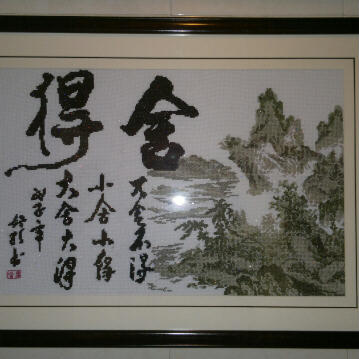 舍得
不舍不得
小舍小得
大舍大得
戊子年